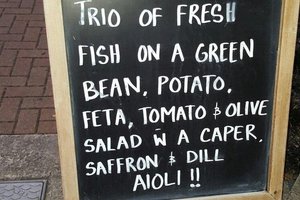 TRIO OF FRESH
FISH ON A GREEN
BEAN, POTATO,
FETA, TOMATO & OLIVE
SALAD W A CAPER,
SAFFRON & DILL
AIOLI !!